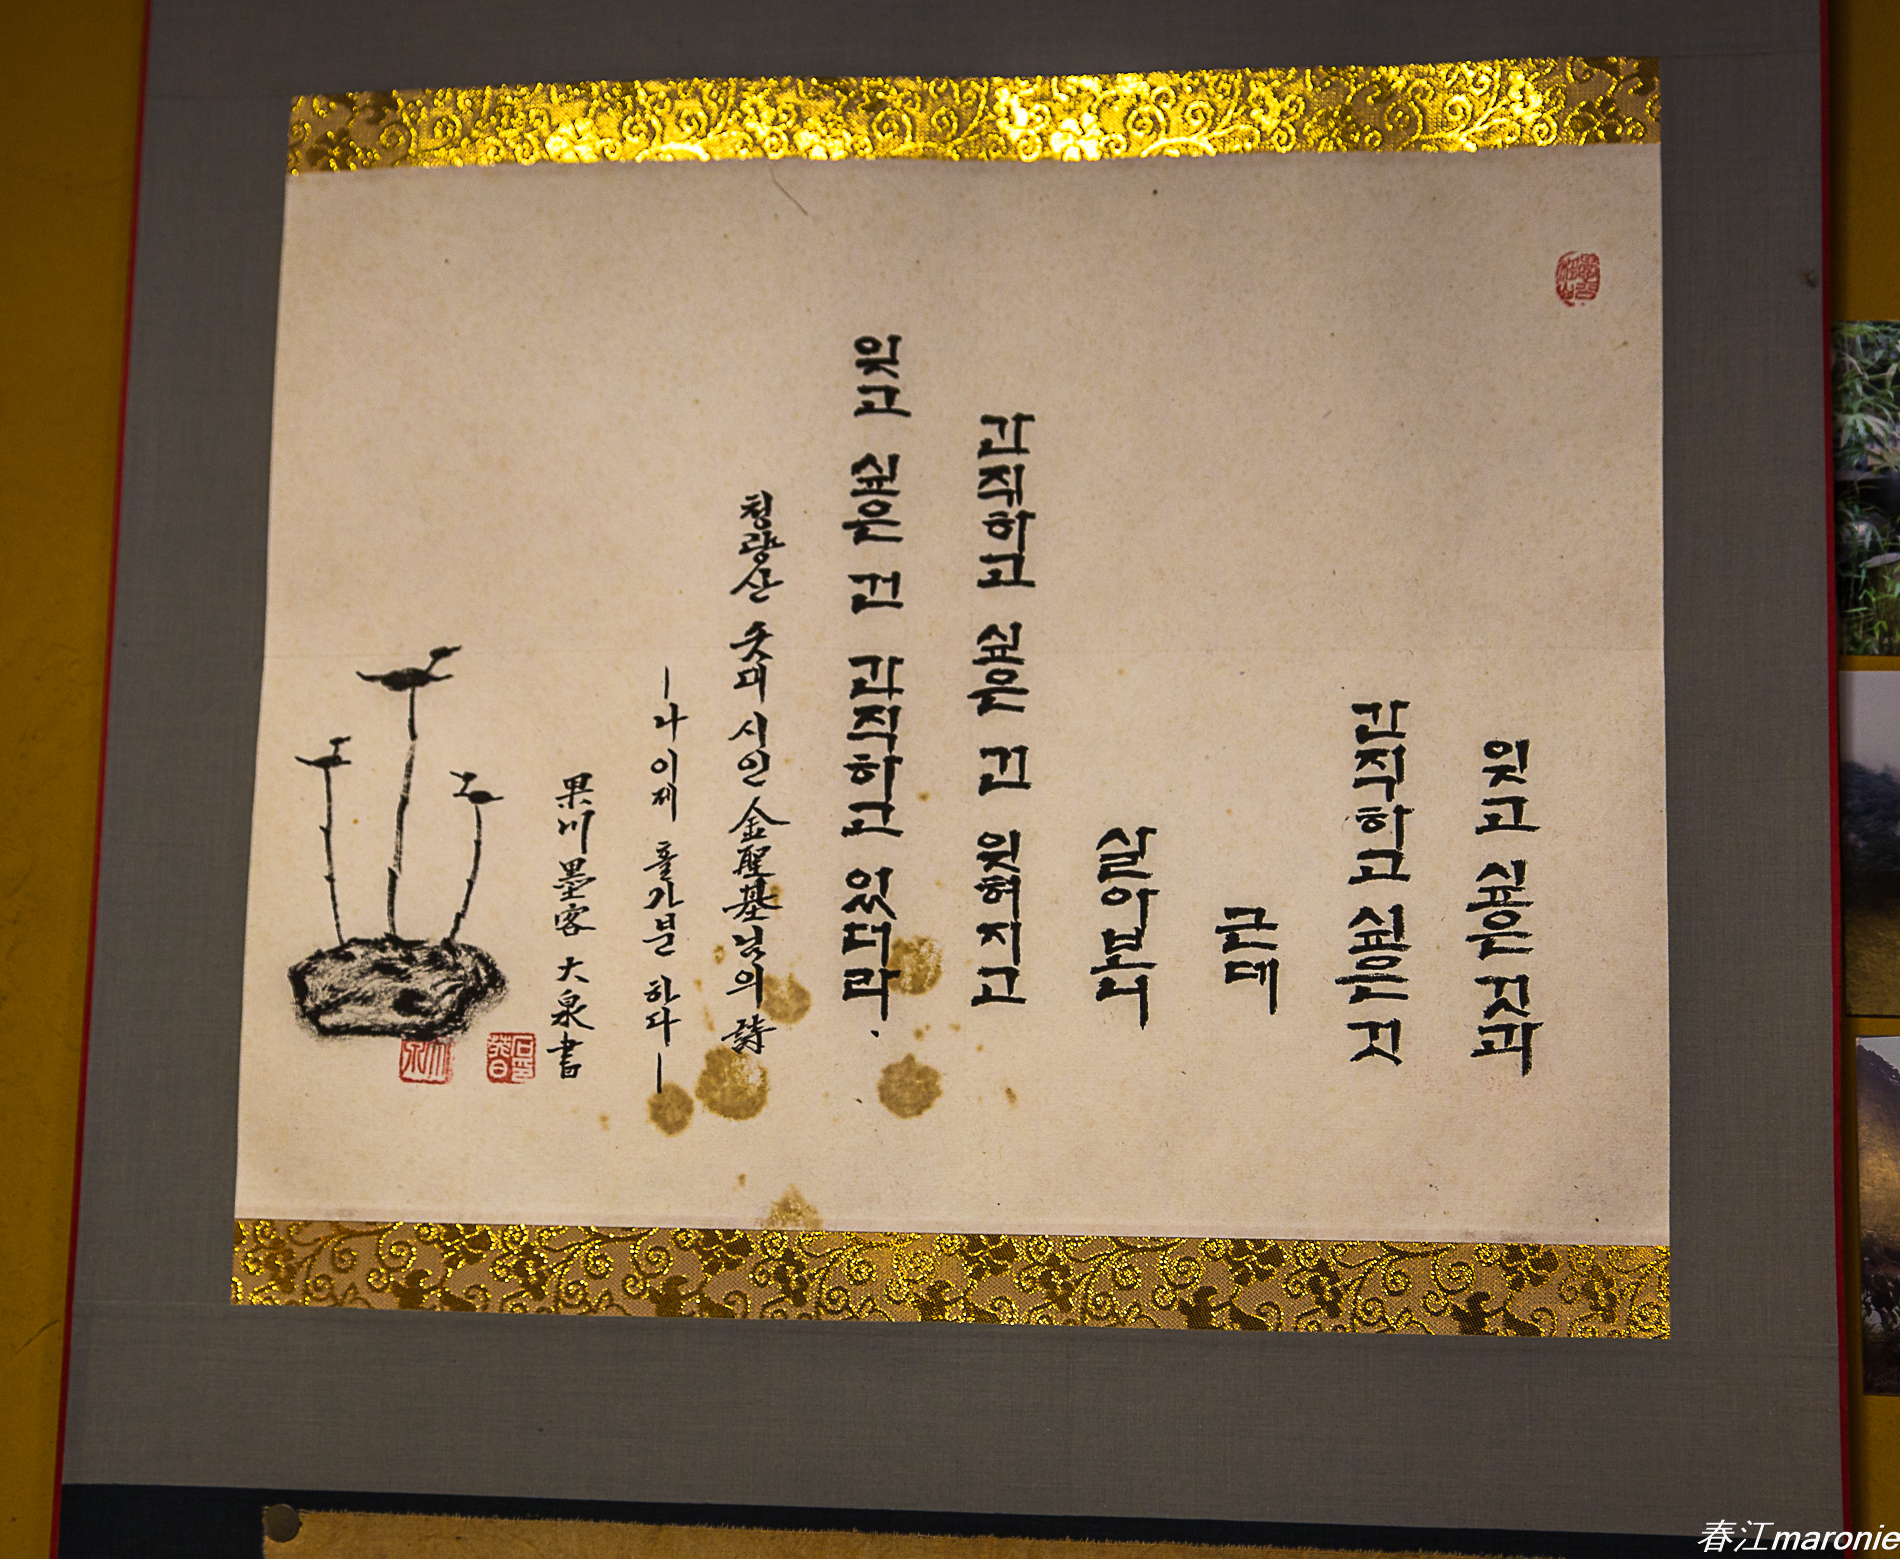 잊고 싶은 것과
간직하고 싶은 것
근데
살아보니
간직하고 싶은 건 잊혀지고
잊고 싶은 건 간직하고 있더라.
청량산 솟대 시인 金聖基님의 詩
―나 이제 홀가분 하다―
果川墨客 大泉書
春江maronie